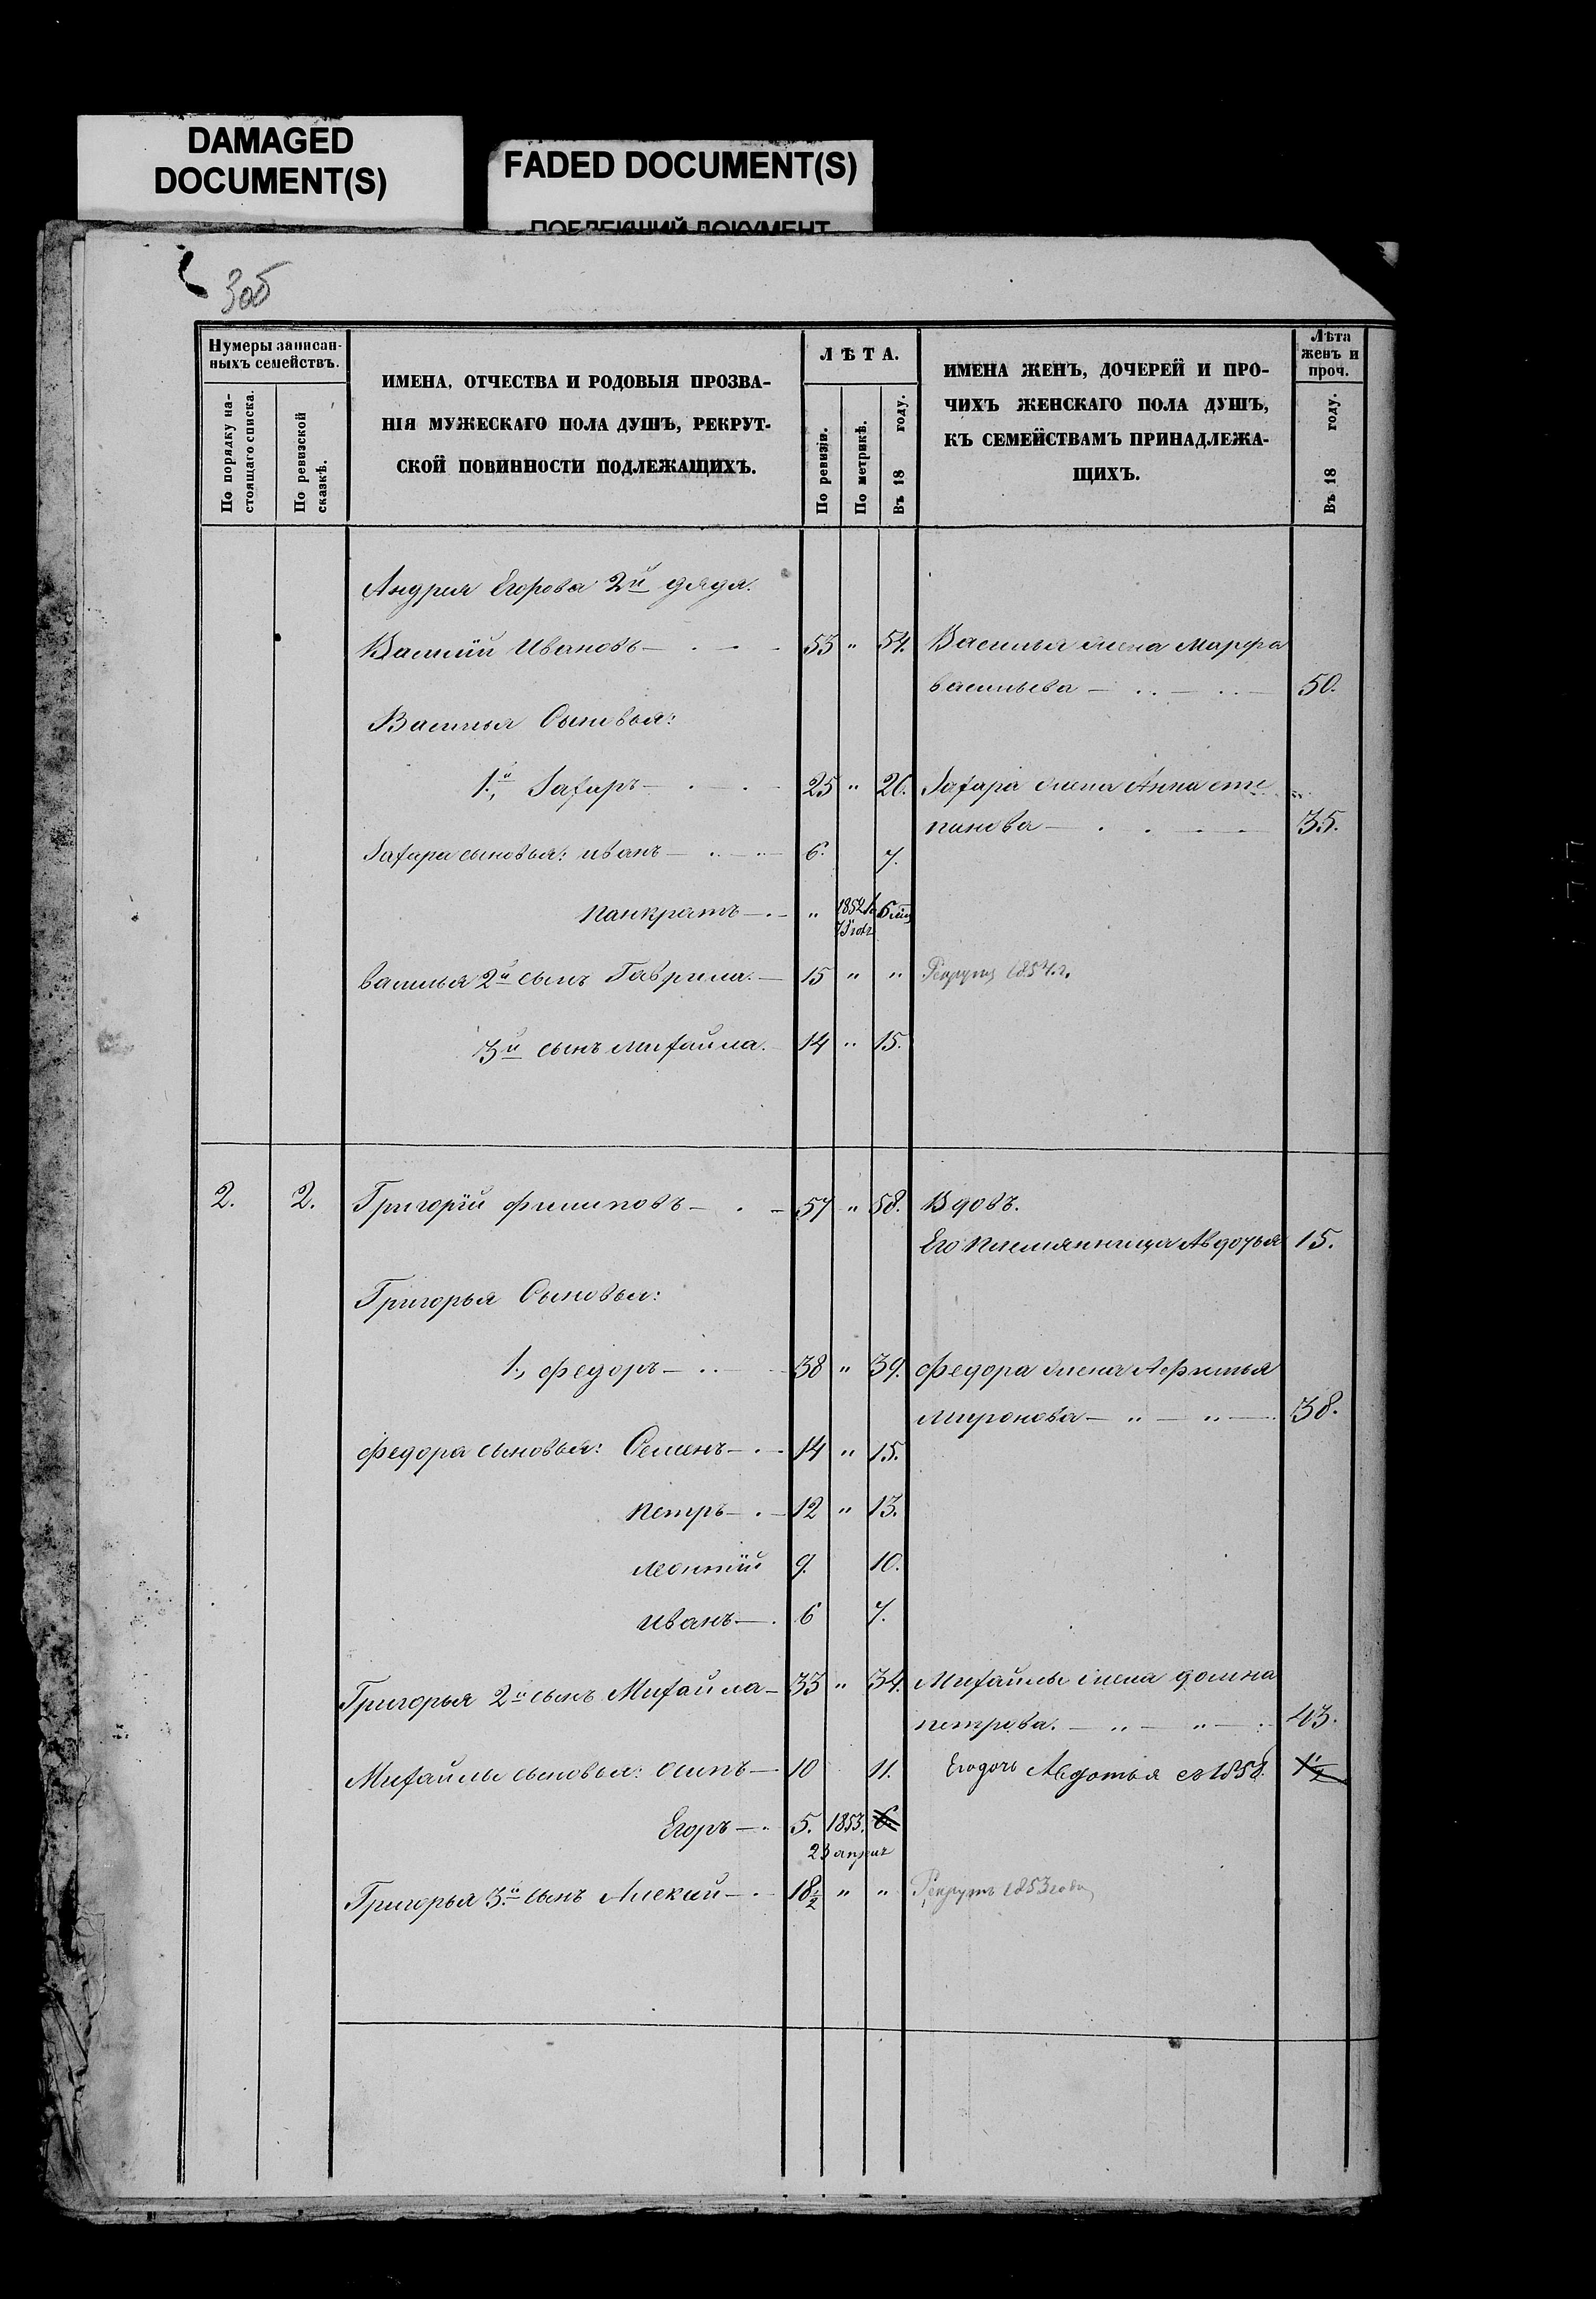 DAMAGED
DOCUMENT(S)
FADED DOCUMENT(S)
ПОБЛЕКШИЙ ДОКУМЕНТ
3об
Нумеры записан-
ныхъ семействъ.
По порядку на-
стоящаго списка.
По ревизской
сказкѣ.
ИМЕНА, ОТЧЕСТВА И РОДОВЫЯ ПРОЗВА-
НІЯ МУЖЕСКАГО ПОЛА ДУШЪ, РЕКРУТ-
СКОЙ ПОВИННОСТИ ПОДЛЕЖАЩИХЪ.
ЛѢТА.
По ревизіи.
По метрикѣ.
Въ 18 году.
ИМЕНА ЖЕНЪ, ДОЧЕРЕЙ И ПРО-
ЧИХЪ ЖЕНСКАГО ПОЛА ДУШЪ,
КЪ СЕМЕЙСТВАМЪ ПРИНАДЛЕЖА-
ЩИХЪ.
Лѣта
женъ и
проч.
Въ 18 году.
Андрея Егорова 2й дядя.
Василій Ивановъ — 53 " 54. Василья жена Марфа
васильева — 50.
Василья Сыновья:
1й, Захаръ — 25 " 26. Захара жена Анна сте
панова — 35.
Захара сыновья: иванъ — 6. 7.
панкратъ — " 1852 6
василья 2й сынъ Гаврила. — 15 " " Рекрутъ 1854.г.
3й сынъ михайла. 14 " 15.
2. 2. Григорій филиповъ — 57 " 58. Вдовъ.
Его племянница Авдотья 15.
Григорья Сыновья:
1, федоръ — 38 " 39. федора жена Афимья
миронова — " — " — 38.
федора сыновья: Семенъ — 14 " 15.
петръ — 12 " 13.
леонтій 9. 10.
иванъ — 6 7.
Григорья 2й сынъ Михайла — 33 " 34. Михайлы жена домна
петрова. — " — " — 43.
Михайлы сыновья: осипъ — 10 11. Егодочь Авдотья съ 1858. 1/2
Егоръ — 5. 1853. 6.
23 апреля
Григорья 3й сынъ Алексій — 18 1/2 " " Рекрутъ 1853 года